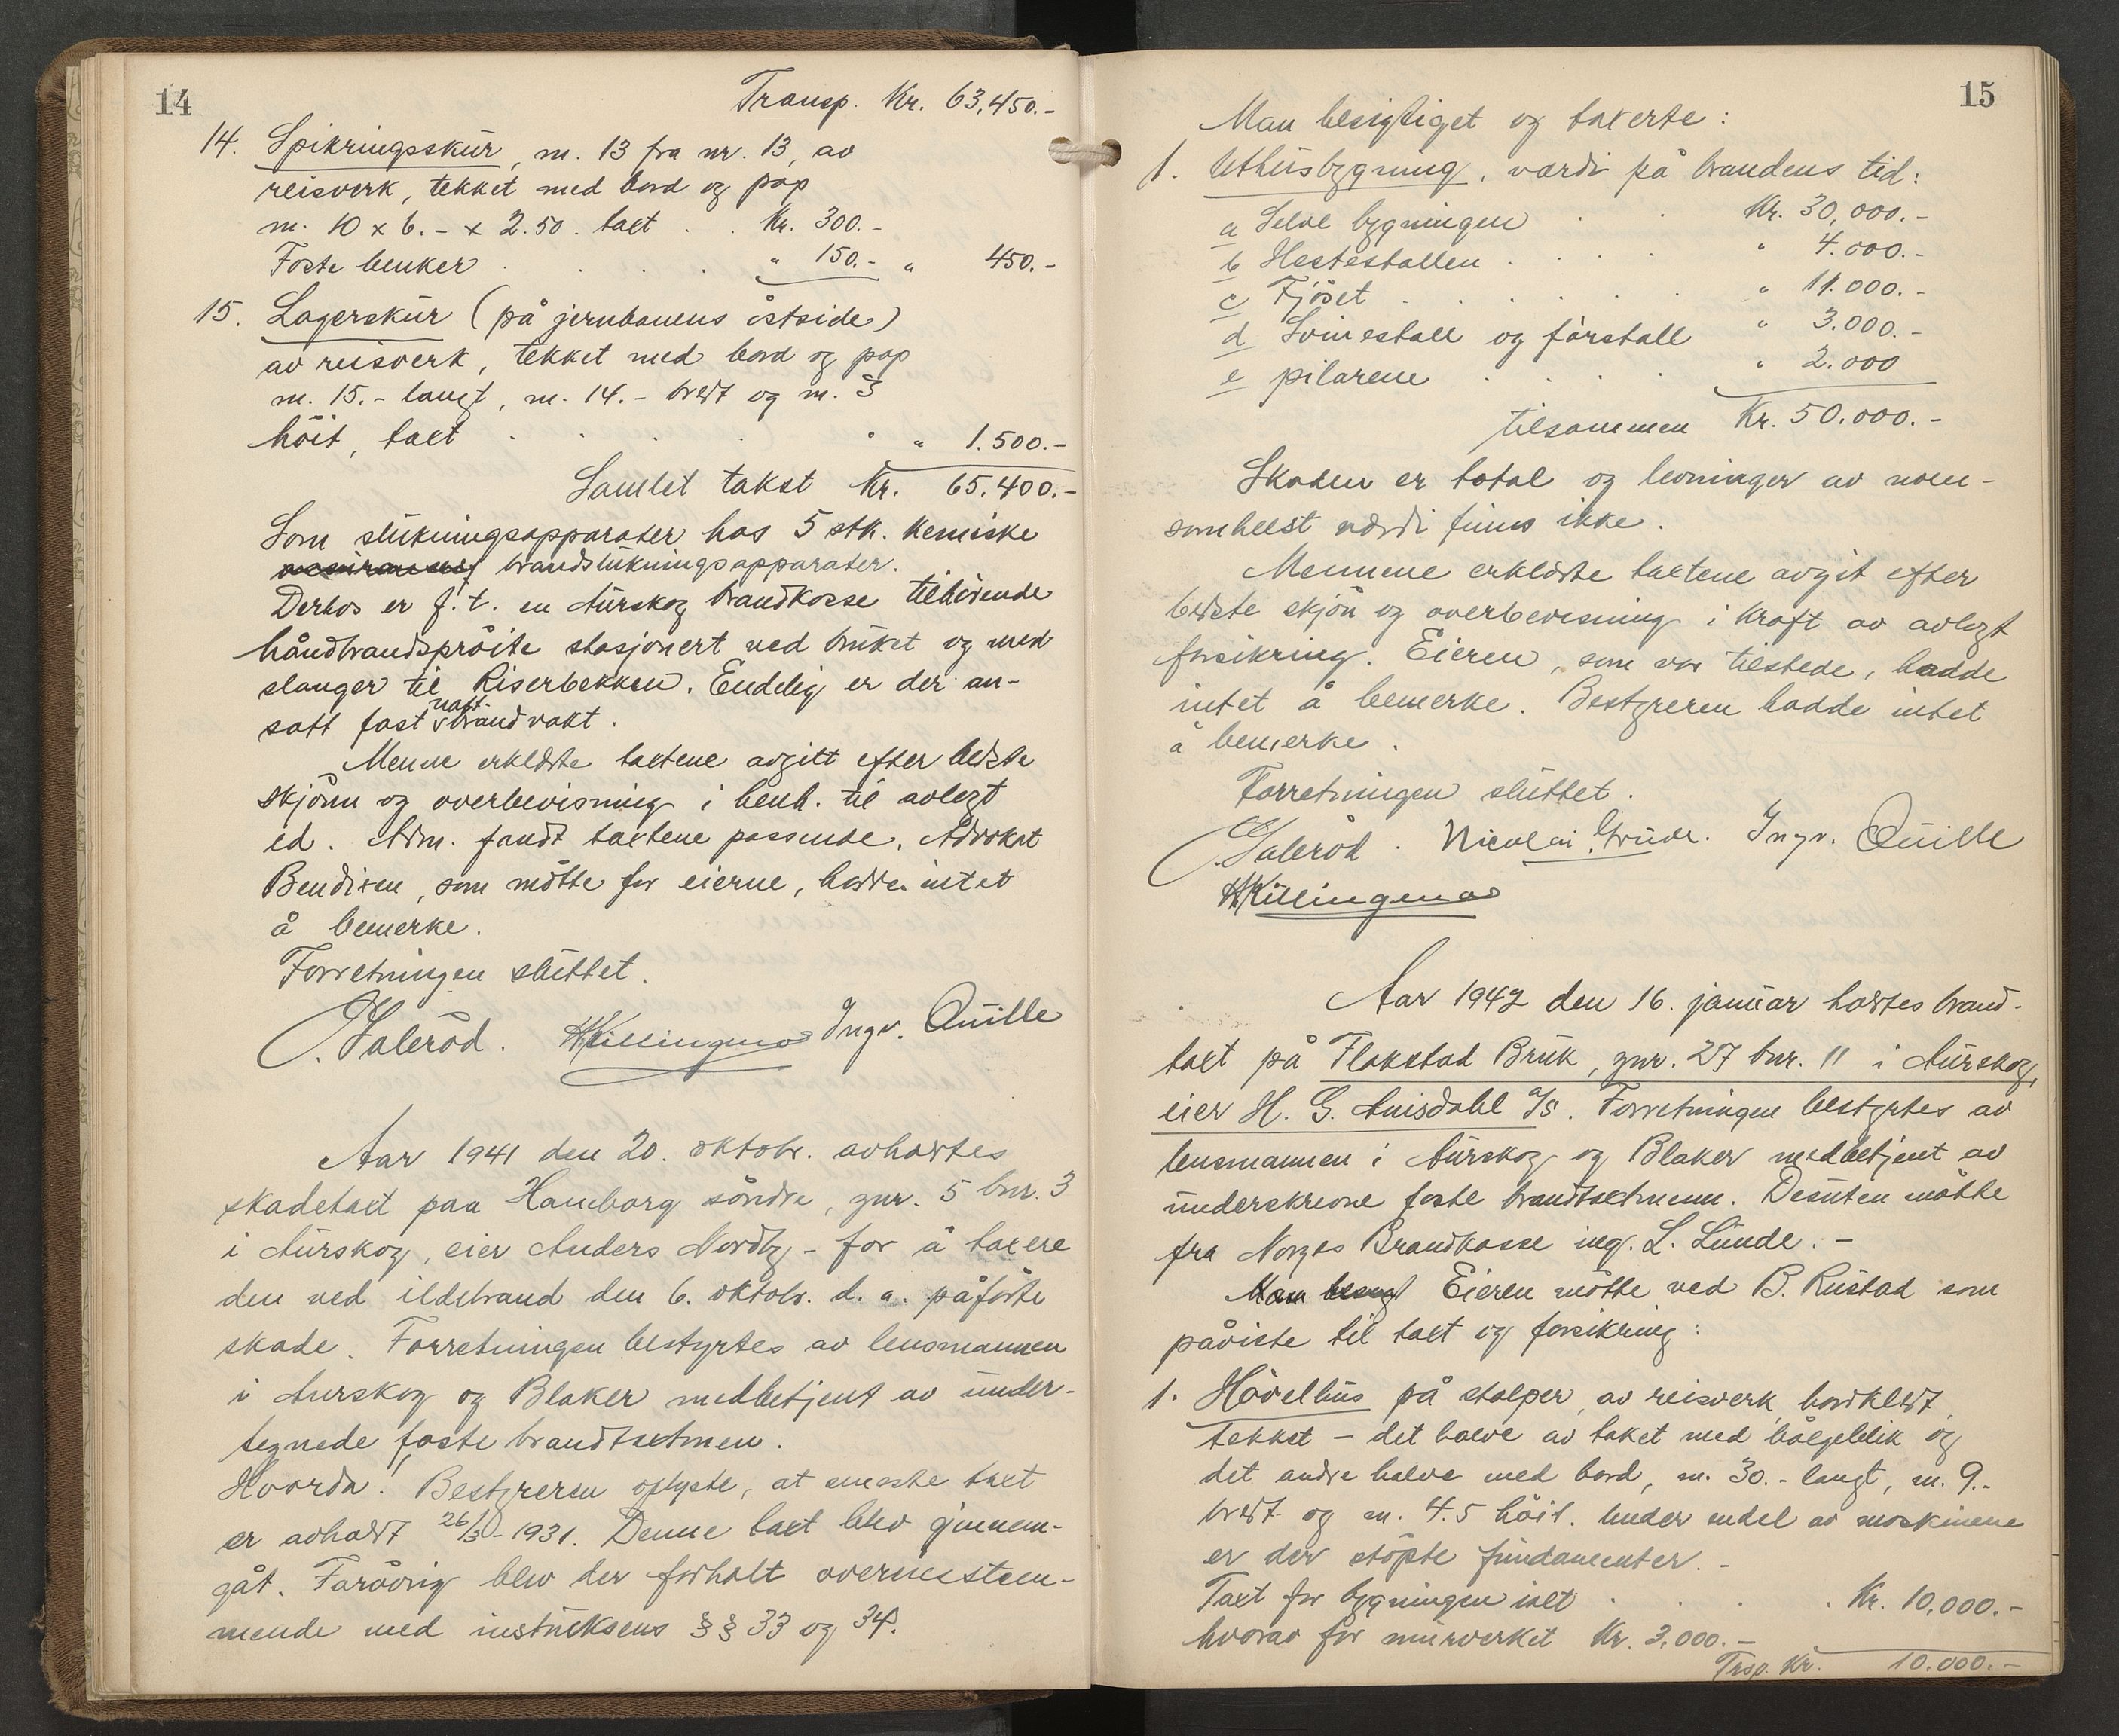 14
Transp. Kr. 63,450.-
14. Spikringsskur, m. 13 fra nr. 13, av
reisverk, tekket med bord og pap
m. 10 x 6.- x 2.50. taxt . . Kr. 300.-
Faste benker . . . . " 150.- " 450.-
15. Lagerskur (på jernbanens östside)
av reisverk, tekket med bord og pap
m. 15.- langt, m. 14.- bredt og m. 3
höit, taxt . . . . . " 1.500.-
Samlet takst Kr. 65.400.-
Som slukningsapparater has 5 stk. kemiske
brandslukningsapparater.
Derhos er f.t. en Aurskog brandkasse tilhörende
håndbrandspröite stasjonert ved bruket og med
slanger til Riserbekken. Endelig er der an-
satt fast natt- brandvakt.
Menne erklærte taxtene avgitt efter bedste
skjönn og overbevisning i henh. til avlegt
ed. Adm. fandt taxtene passende. Advokat
Bendixen, som mötte for eierne, hadde intet
å bemerke.
Forretningen sluttet.
J. Saleröd. H Killingmo Ingv. Quille
Aar 1941 den 20. oktobr. avholdtes
skadetaxt paa Hamborg söndre, gnr. 5 bnr. 3
i Aurskog, eier Anders Nordby - for å taxere
den ved ildebrand den 6. oktobr. d. a. påförte
skade. Forretningen bestyrtes av lensmannen
i Aurskog og Blaker medbetjent av under-
tegnede faste brandtaxtmen.
Hvorda! Bestyreren oplyste, at seneste taxt
er avholdt 26/3-1931. Denne taxt blev gjennem-
gåt. Foröfrig blev der forholt overensstem-
mende med instruksens §§ 33 og 34.
15
Man besigtiget og taxerte:
1. Uthusbygning, værdi på brandens tid:
a Selve bygningen . . Kr. 30,000.-
b Hestestallen . . . . " 4.000.-
c Fjöset . . . . . . " 11.000.-
d Svinestall og fårstall " 3.000.-
e pilarene . . . . " 2.000
tilsammen Kr. 50.000.-
Skaden er total og levninger av noen-
somhelst værdi finns ikke.
Mennene erklærte taxtene avgit efter
bedste skjön og overbevisning i kraft av avlegt
forsikring. Eieren, som var tilstede, hadde
intet å bemerke. Bestyreren hadde intet
å bemerke.
Forretningen sluttet.
J. Saleröd. Nicolai Grude. Ingv. Quille
H Killingmo
Aar 1942 den 16. januar holdtes brand-
taxt på Flakstad Bruk, gnr. 27 bnr. 11 i Aurskog,
eier H. G. Auisdahl A/S. Forretningen bestyrtes av
lensmannen i Aurskog og Blaker medbetjent av
underskrevne faste brandtaxtmenn. Desuten mötte
fra Norges Brandkasse ing. L. Lunde. -
Man besigt Eieren mötte ved B. Rustad som
påviste til taxt og forsikring:
1. Hövelhus på stolper av reisverk, bordklædt,
tekket - det halve av taket med bölgeblik og
det andre halve med bord, m. 30.- langt, m. 9.-
bredt og m. 4.5 höit. Under endel av maskinene
er der stöpte fundamenter. -
Taxt for bygningen ialt . . . . Kr. 10,000.-
hvorav for murverket Kr. 3,000.-
Trsp. Kr. 10.000.-